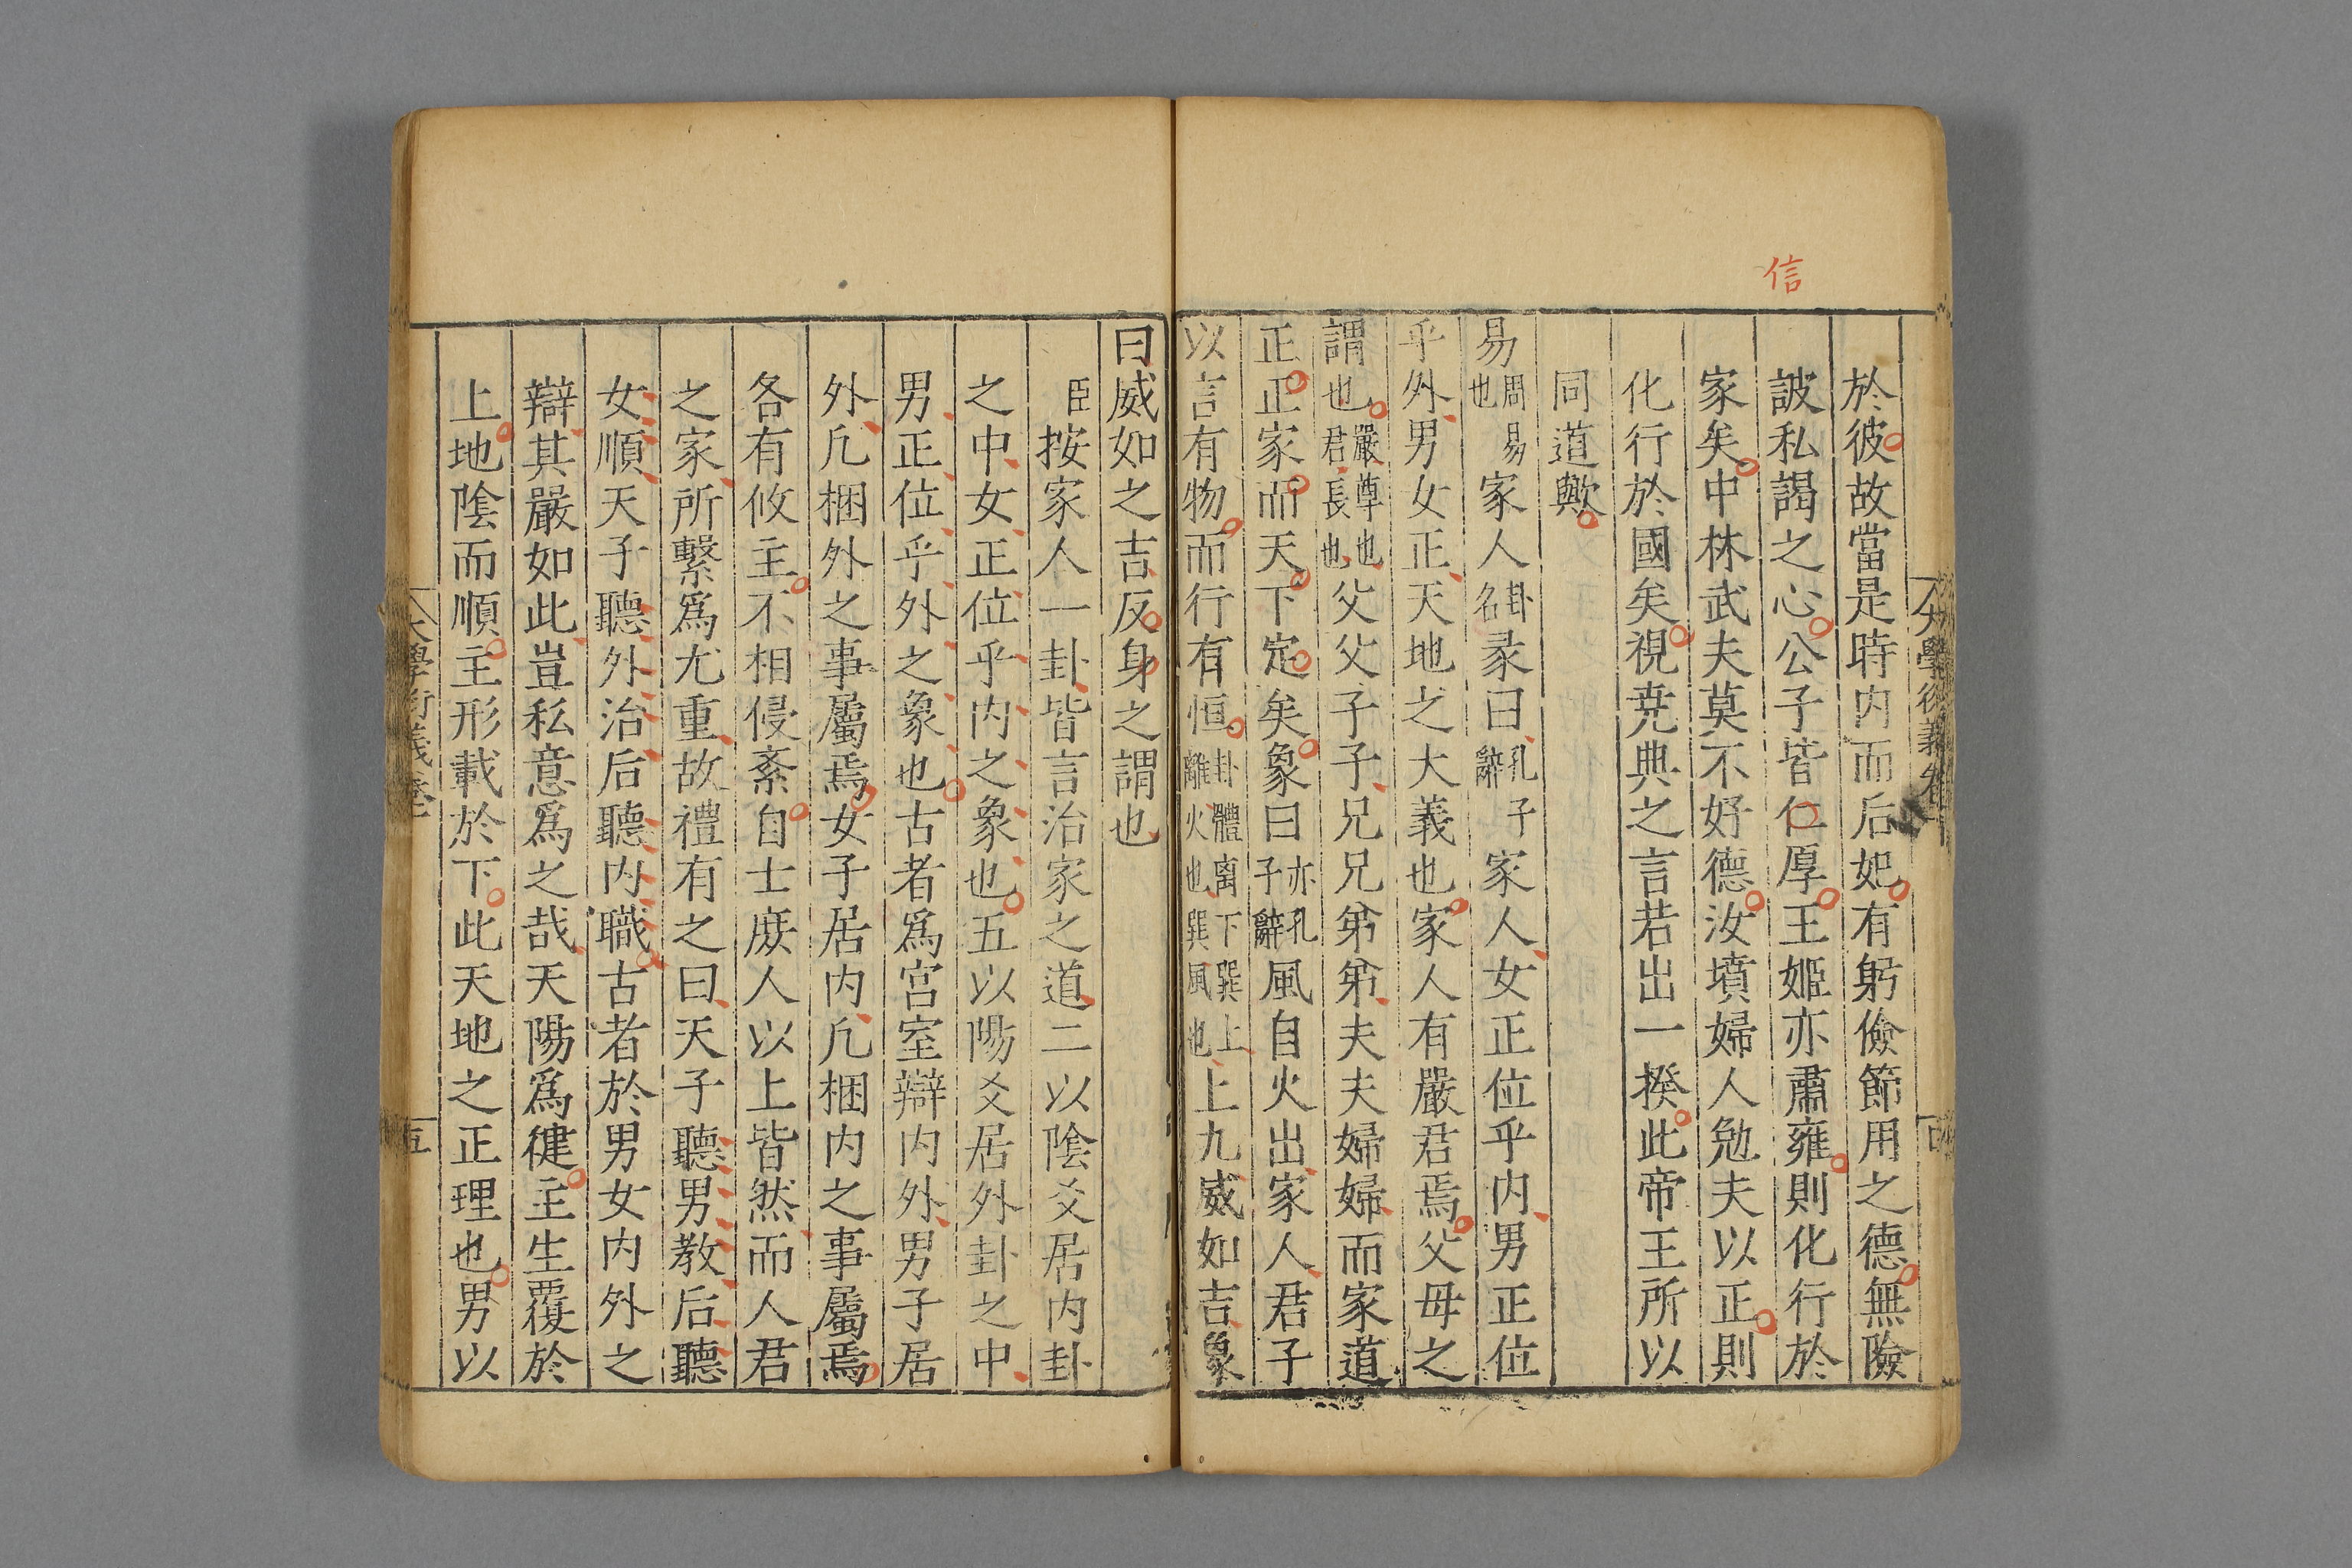 信
於彼故當是時内而后妃有躬儉節用之德無險
詖私謁之心公子皆仁厚王姬亦肅雍則化行於
家矣中林武夫莫不好德汝墳婦人勉夫以正則
化行於國矣視堯典之言若出一揆此帝王所以
同道歟
易周易也家人卦名彖曰孔子辭家人女正位乎内男正位
乎外男女正天地之大義也家人有嚴君焉父母之
謂也嚴尊也君長也父父子子兄兄弟弟夫夫婦婦而家道
正正家而天下定矣象曰亦孔子辭風自火出家人君子
以言有物而行有恒卦體离下巽上離火也巽風也上九威如吉象
曰威如之吉反身之謂也
臣按家人一卦皆言治家之道二以陰爻居内卦
之中女正位乎内之象也五以陽爻居外卦之中
男正位乎外之象也古者爲宫室辯内外男子居
外凢梱外之事屬焉女子居内凢梱内之事屬焉
各有攸主不相侵紊自士庻人以上皆然而人君
之家所繫爲尤重故禮有之曰天子聽男教后聽
女順天子聽外治后聽内職古者於男女内外之
辯其嚴如此豈私意爲之哉天陽爲健主生覆於
上地陰而順主形載於下此天地之正理也男以